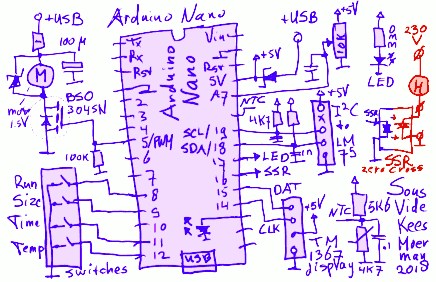 Arduino Nano
+USB
100µ
M
max
1.5V
BSO
3045N
100K
Run
Size
Time
Temp
switches
Tx
Rx
Rst
2
3
4
5/PWM
6
7
8
9
10
11
12
Arduino
Nano
USB
Vin
Rst
5V
A7
SCL/19
SDA/18
17
16
15
14
+USB
+5V
+5V
10K
LED
230
V
M
NTC
4K7
+5V
I²C
to
LM
75
LED
1n
SSR
SSR
SSR
zero cross
DAT
CLK
+5V
TM
1367
display
NTC
5K6
4K7
.1
Sous
Vide
Kees
Moer
man
2018